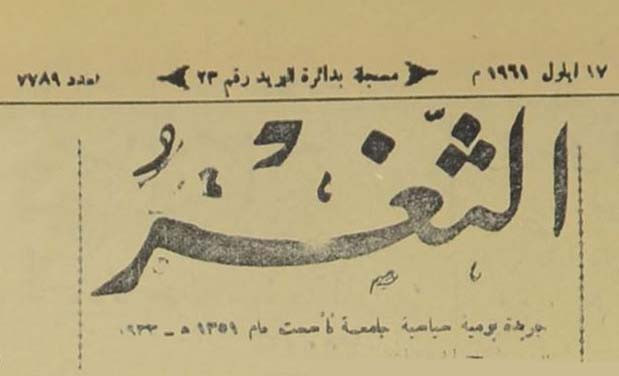 ١٧ ايلول ١٩٦١ م مسجلة بدائرة البريد رقم ٢٣ العدد ٧٧٨٩
الثَّغْرُ
جريدة يومية سياسية جامعة تأسست عام ١٣٥٩ هـ ـ ١٩٣٣